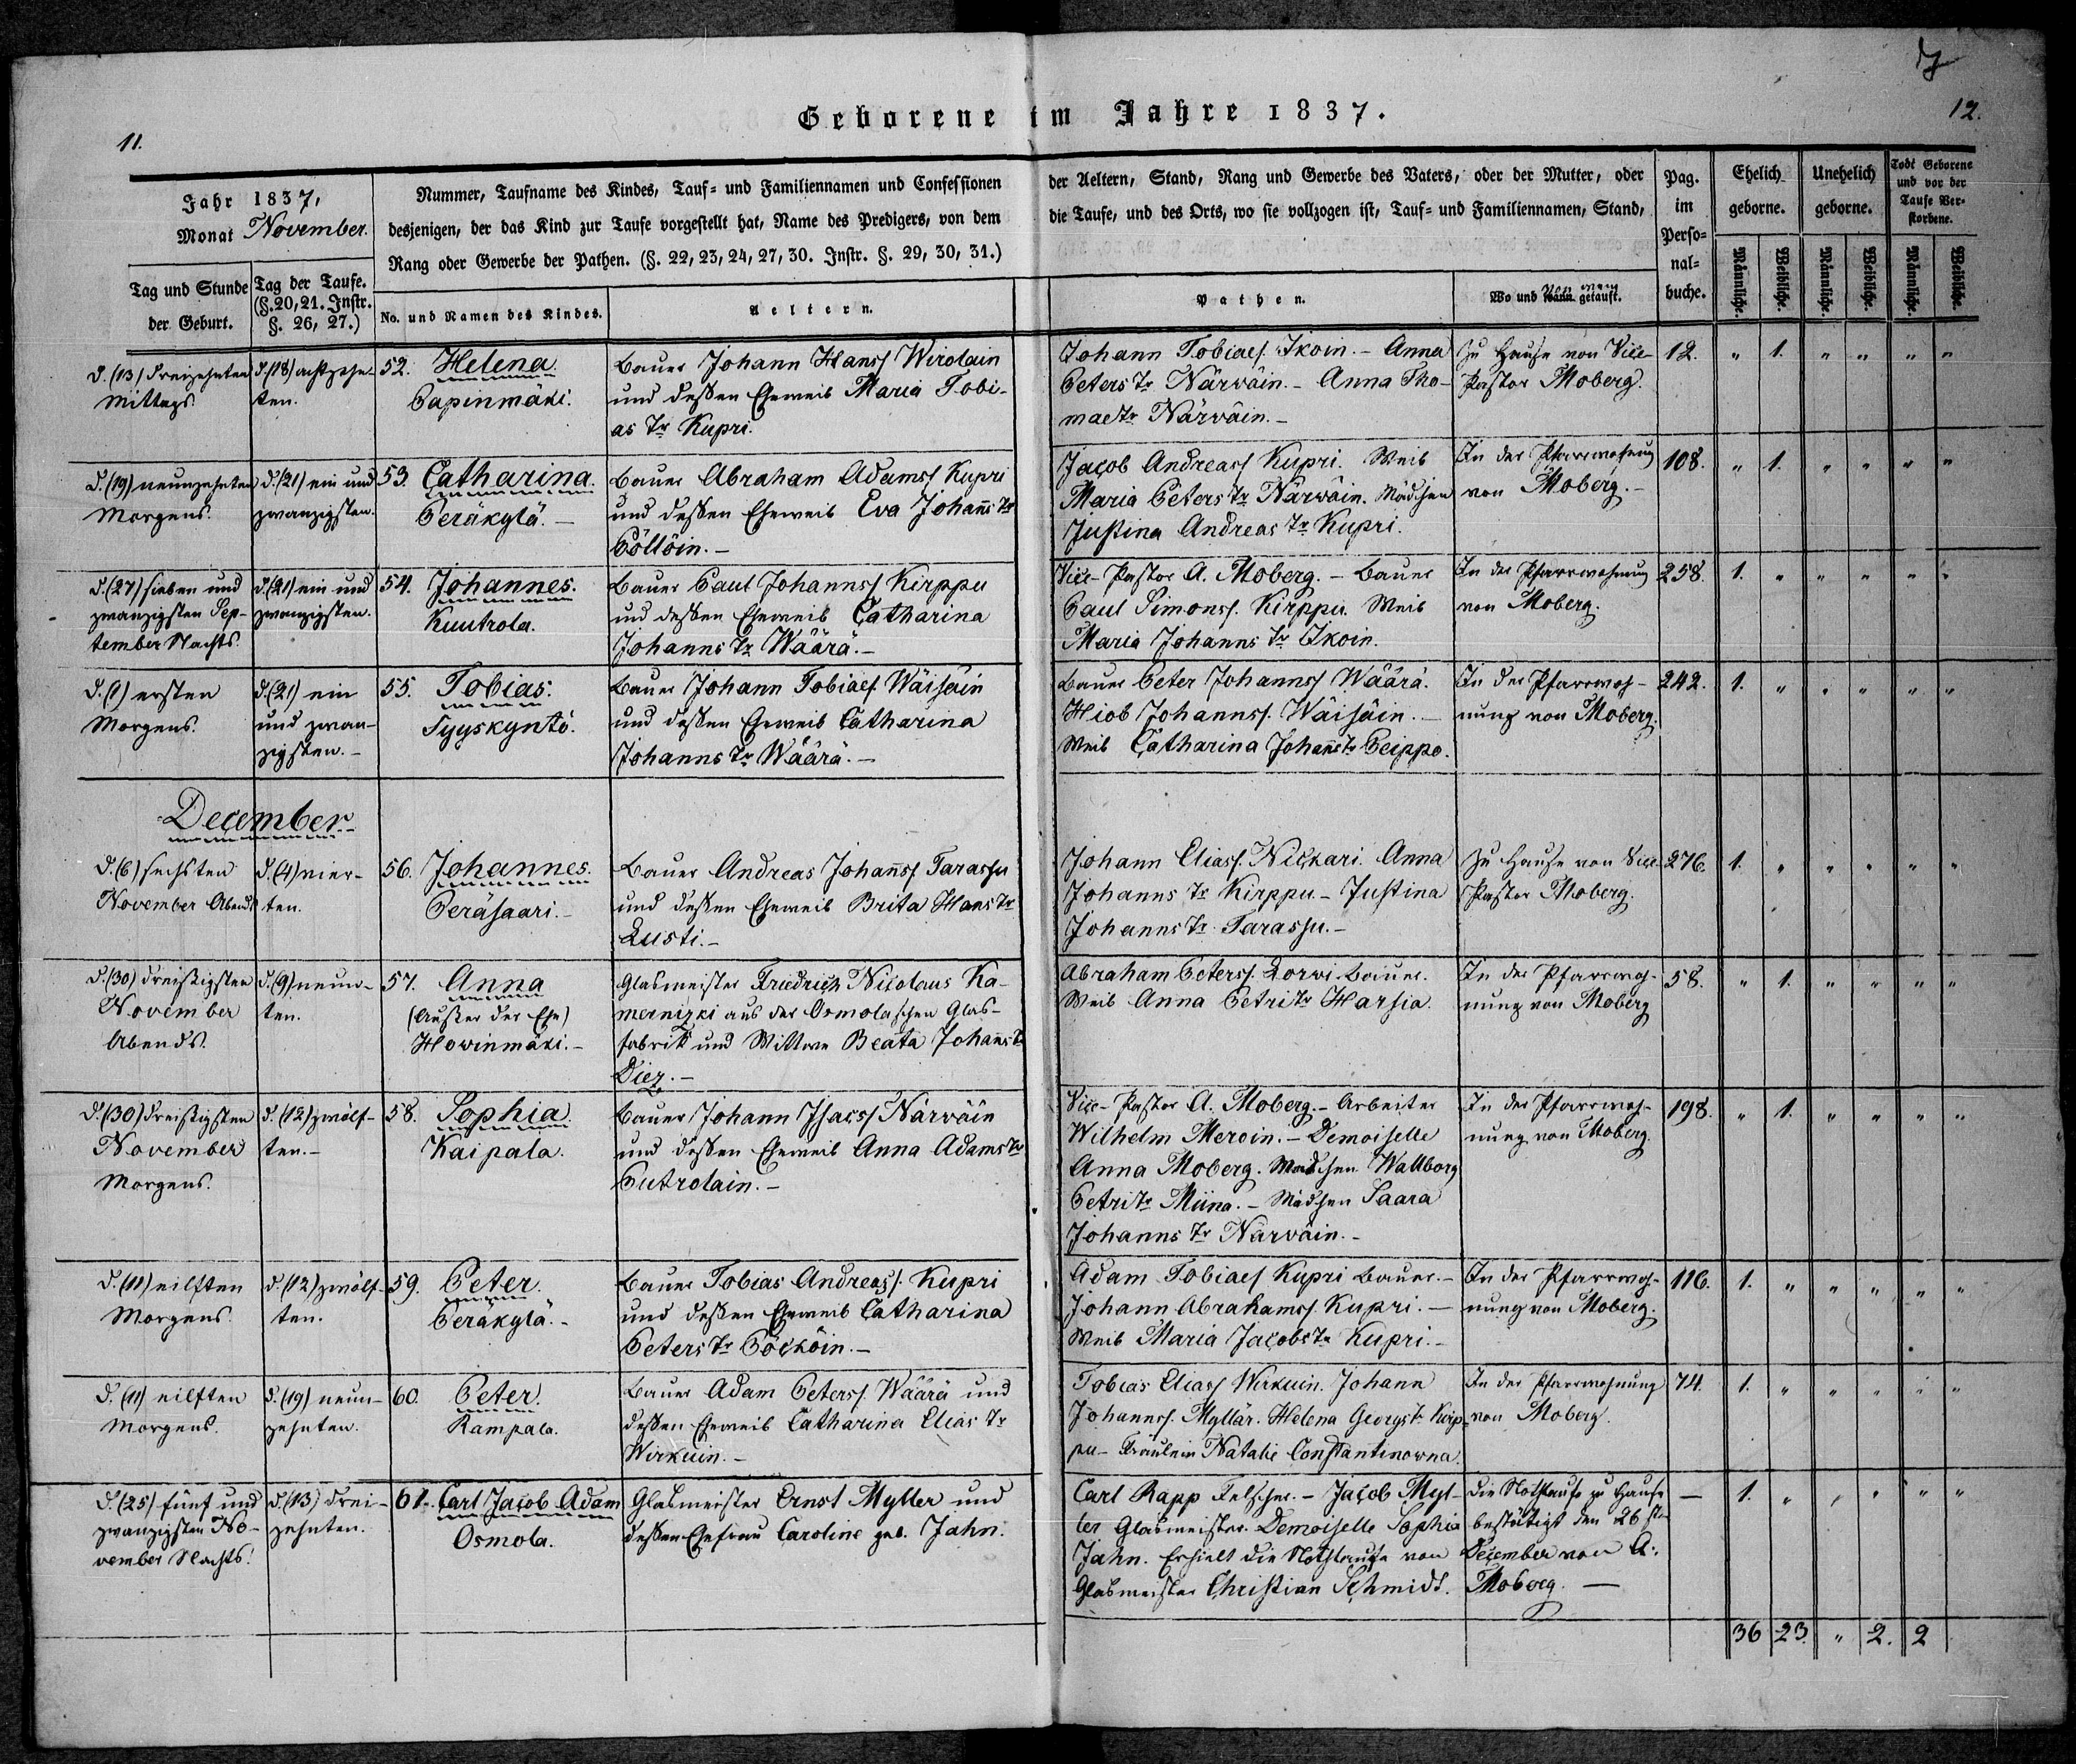 7
11.
12.
Geborene im Jahre 1837.
Jahr 1837,
Monat November.
Tag und Stunde der Geburt.
Tag der Taufe. (§. 20, 21. Instr. §. 26, 27.)
Nummer, Taufname des Kindes, Tauf- und Familiennamen und Confessionen
desjenigen, der das Kind zur Taufe vorgestellt hat, Name des Predigers, von dem
Rang oder Gewerbe der Pathen. (§. 22, 23, 24, 27, 30. Instr. §. 29, 30, 31.)
No. und Namen des Kindes.
Aeltern.
der Aeltern, Stand, Rang und Gewerbe des Vaters, oder der Mutter, oder
die Taufe, und des Orts, wo sie vollzogen ist, Tauf- und Familiennamen, Stand,
Pathen.
Wo und von wem getauft.
Pag. im Perso- nal- buche.
Ehelich geborne.
Unehelich geborne.
Todt Geborene und vor der Taufe Ver- storbene.
Männliche.
Weibliche.
Männliche.
Weibliche.
Männliche.
Weibliche.
d. (13) dreizehnten
Mittags.
d. (18) achtzehn-
ten.
52. Helena
Papinmäki.
Bauer Johann Hanss Wirolain
und dessen Eheweib Maria Tobi-
as Tr Kupri.
Johann Tobiaes. Ikoin. - Anna
Peters Tr Närwäin. - Anna Tho-
mae Tr Närwäin. -
Zu Hause von Vice-
Pastor Moberg.
12. " 1. " " " "
d. (19) neunzehnten
Morgens.
d. (21) ein und
zwanzigsten.
53. Catharina.
Peräkylä. -
Bauer Abraham Adamss Kupri
und dessen Eheweib Eva Johanns Tr
Pöllöin. -
Jacob Andreass Kupri. Weib
Maria Peters Tr Närwäin. Mädchen
Justina Andreas Tr Kupri.
In der Pfarrwohnung
von Moberg. -
108. " 1. " " " "
d. (27) sieben und
zwanzigsten Sep-
tember Nachts.
d. (21) ein und
zwanzigsten.
54. Johannes.
Kuutrola.
Bauer Paul Johannss Kirppu
und dessen Eheweib Catharina
Johanns Tr Wäärä. -
Vice-Pastor A. Moberg. - Bauer
Paul Simonss. Kirppu. Weib
Maria Johanns Tr Ikoin.
In der Pfarrwohnung
von Moberg.
258. 1. " " " " "
d. (1) ersten
Morgens.
d. (21) ein
und zwan-
zigsten. -
55. Tobias.
Syyskyntö.
Bauer Johann Tobiaes Wäisäin
und dessen Eheweib Catharina
Johanns Tr Wäärä. -
Bauer Peter Johannss Wäärä.
Hiob Johannss. Wäisäin. -
Weib Catharina Johanns Tr Peippo.
In der Pfarrwoh-
nung von Moberg.
242. 1. " " " " "
December
d. (6) sechsten
November Abends
d. (4) vier-
ten.
56. Johannes.
Peräsaari. -
Bauer Andreas Johannss Tarassu
und dessen Eheweib Brita Hans Tr
Lusti. -
Johann Eliass. Nickari. Anna
Johanns Tr Kirppu. - Justina
Johanns Tr Tarassu. -
Zu Hause von Vice-
Pastor Moberg.
276. 1. " " " " "
d. (30) dreißigsten
November
Abends.
d. (9) neun-
ten.
57. Anna
(Außer der Ehe)
Howinmäki. -
Glasmeister Friedrich Nicolaus Ka-
mernizki aus der Osmolaschen Glas-
fabrik und Wittwe Beata Johanns Tr
Diez. -
Abraham Peterss. Lorwi Bauer.
Weib Anna Petri Tr Harsia.
In der Pfarrwoh-
nung von Moberg
58. " 1. " " " "
d. (30) dreißigsten
November
Morgens.
d. (12) zwölf-
ten. -
58. Sophia
Kaipala.
Bauer Johann Isacss Närwäin
und dessen Eheweib Anna Adams Tr
Putrolain. -
Vice-Pastor A. Moberg. - Arbeiter
Wilhelm Meroin. - Demoiselle
Anna Moberg. Mädchen Wallborg
Petri Tr Miina. - Mädchen Saara
Johanns Tr Närwäin. -
In der Pfarrwoh-
nung von Moberg.
198. " 1. " " " "
d. (11) eilften
Morgens.
d. (12) zwölf-
ten.
59. Peter.
Peräkylä. -
Bauer Tobias Andreass. Kupri
und dessen Eheweib Catharina
Peters Tr Pöcköin. -
Adam Tobiaes Kupri Bauer. -
Johann Abrahamss. Kupri. -
Weib Maria Jacobs Tr Kupri. -
In der Pfarrwoh-
nung von Moberg.
116. 1. " " " " "
d. (11) eilften
Morgens.
d. (19) neun-
zehnten.
60. Peter.
Rampala.
Bauer Adam Peterss. Wäärä und
dessen Eheweib Catharina Elias Tr
Wirkuin. -
Tobias Eliass Wirkuin. Johann
Johannss. Myllär. Helena Georgs Tr Kirp-
pu - Fräulein Natalie Constantinowna.
In der Pfarrwohnung
von Moberg.
74. 1. " " " " "
d. (25) fünf und
zwanzigsten No-
vember Nachts.
d. (13) drei-
zehnten.
61. Carl Jacob Adam
Osmola.
Glasmeister Ernst Myller und
dessen Ehefrau Caroline geb. Jahn.
Carl Rapp Felscher. - Jacob Myl-
ler Glasmeister. Demoiselle Sophia
Jahn. Erhielt die Nothtaufe von
Glasmeister Christian Schmidt.
Die Nothtaufe zu Hause
bestätigt den 26 sten
December von A.
Moberg. -
- 1. " " " " "
36 23. " 2. 2